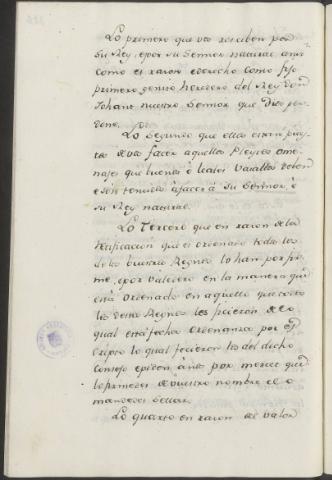 Lo primero que vos resciben por
su Rey, e por su Sennor natural ansi
como es razon e derecho como fijo
primero genito heredero del Rey don
Johan nuestro Sennor que Dios per-
done.
Lo Segundo que ellos estan pres-
tos de vos facer aquellos Pleytos ome-
najes que buenos e leales Vasallos deben
e son tenudos a facer a su Sennor, e
su Rey natural.
Lo Tercero que en razon de la
que es ordenado todos los
de los vuestros Regnos lo han por fir-
me, e por valedero en la manera que
está ordenado en aquello que todos
los destos Regnos les ficieron de lo
qual está fecha Ordenanza por es-
cripto lo qual ficieron los del dicho
Consejo e piden á vos por merced que
lo firmedes de vuestro nombre e lo
mandedes sellar.
Lo quarto en razon del valor